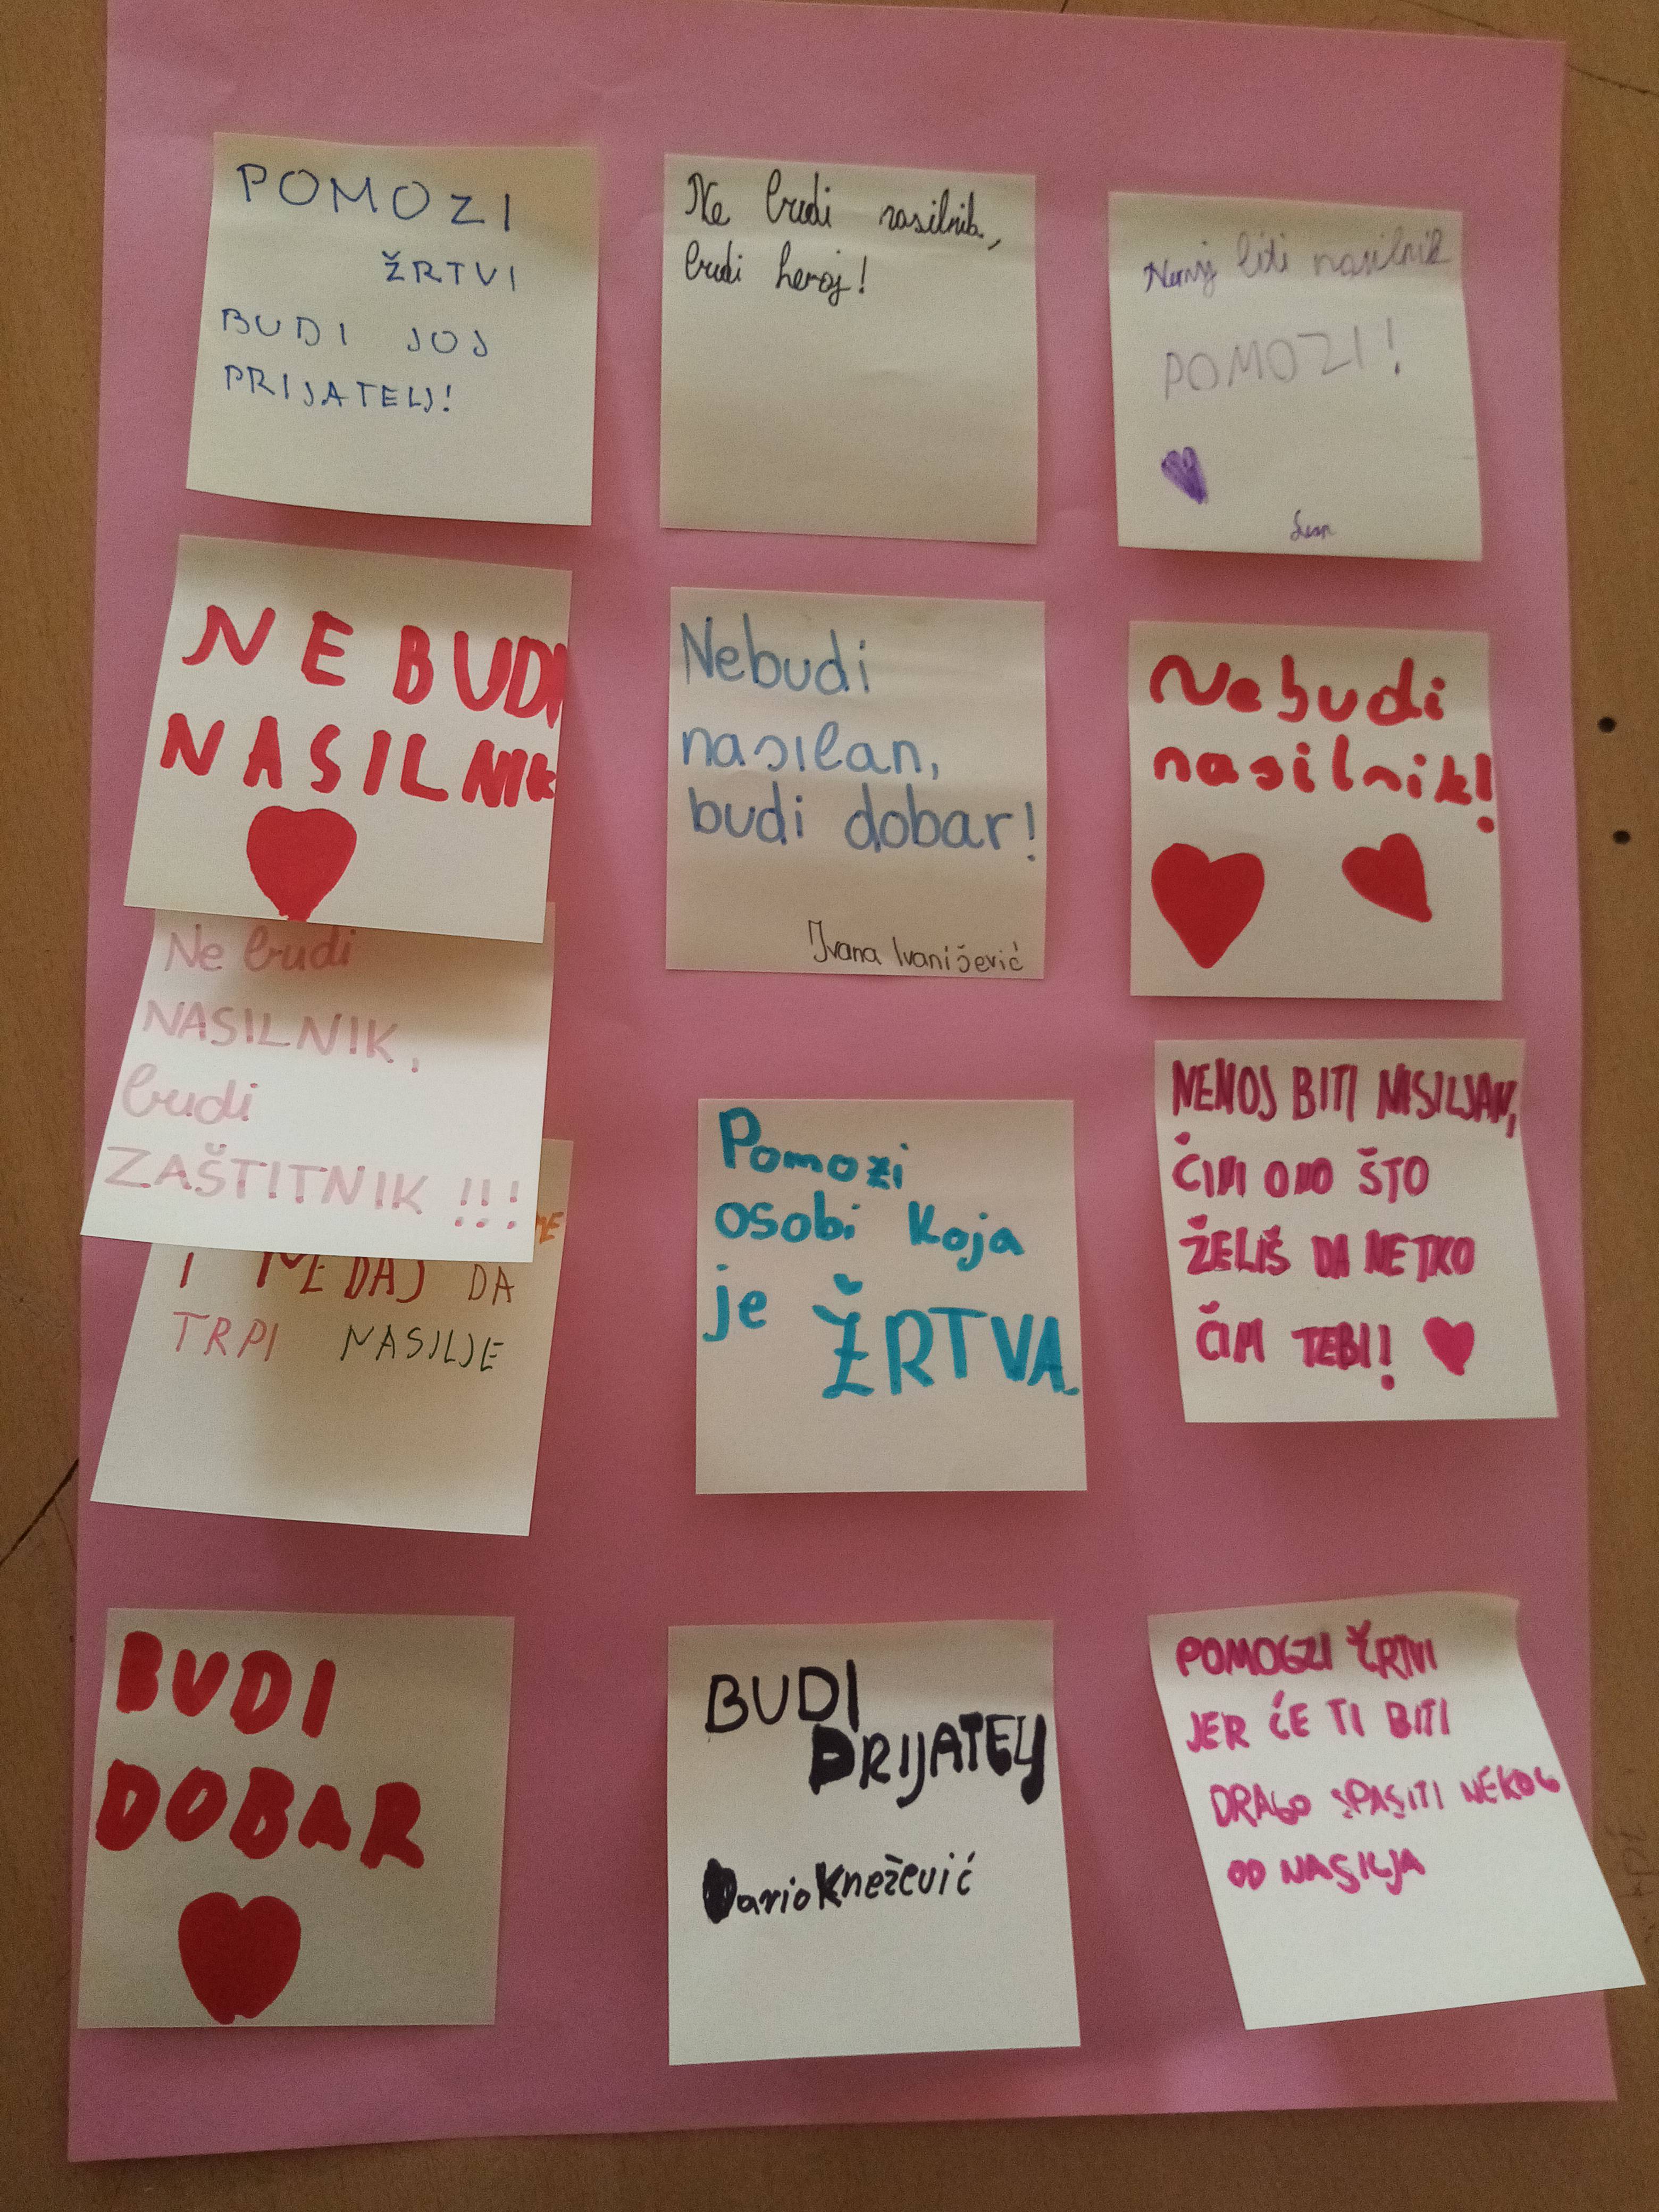 POMOZI
ŽRTVI
BUDI JOJ
PRIJATELJ!
Ne budi nasilnik,
budi heroj!
Nemoj biti nasilnik
POMOZI!
NE BUDI
NASILNIK
Nebudi
nasilan,
budi dobar!
Ivana Ivanišević
Nebudi
nasilnik!
Ne budi
NASILNIK,
budi
ZAŠTITNIK !!!
I NEDAJ DA
TRPI NASILJE
Pomozi
osobi koja
je ŽRTVA.
NEMOJ BITI NASILJAN,
ČINI ONO ŠTO
ŽELIŠ DA NETKO
ČINI TEBI!
BUDI
DOBAR
BUDI
PRIJATELJ
Dario Knežević
POMOGZI ŽRTVI
JER ĆE TI BITI
DRAGO SPASITI NEKOG
OD NASILJA